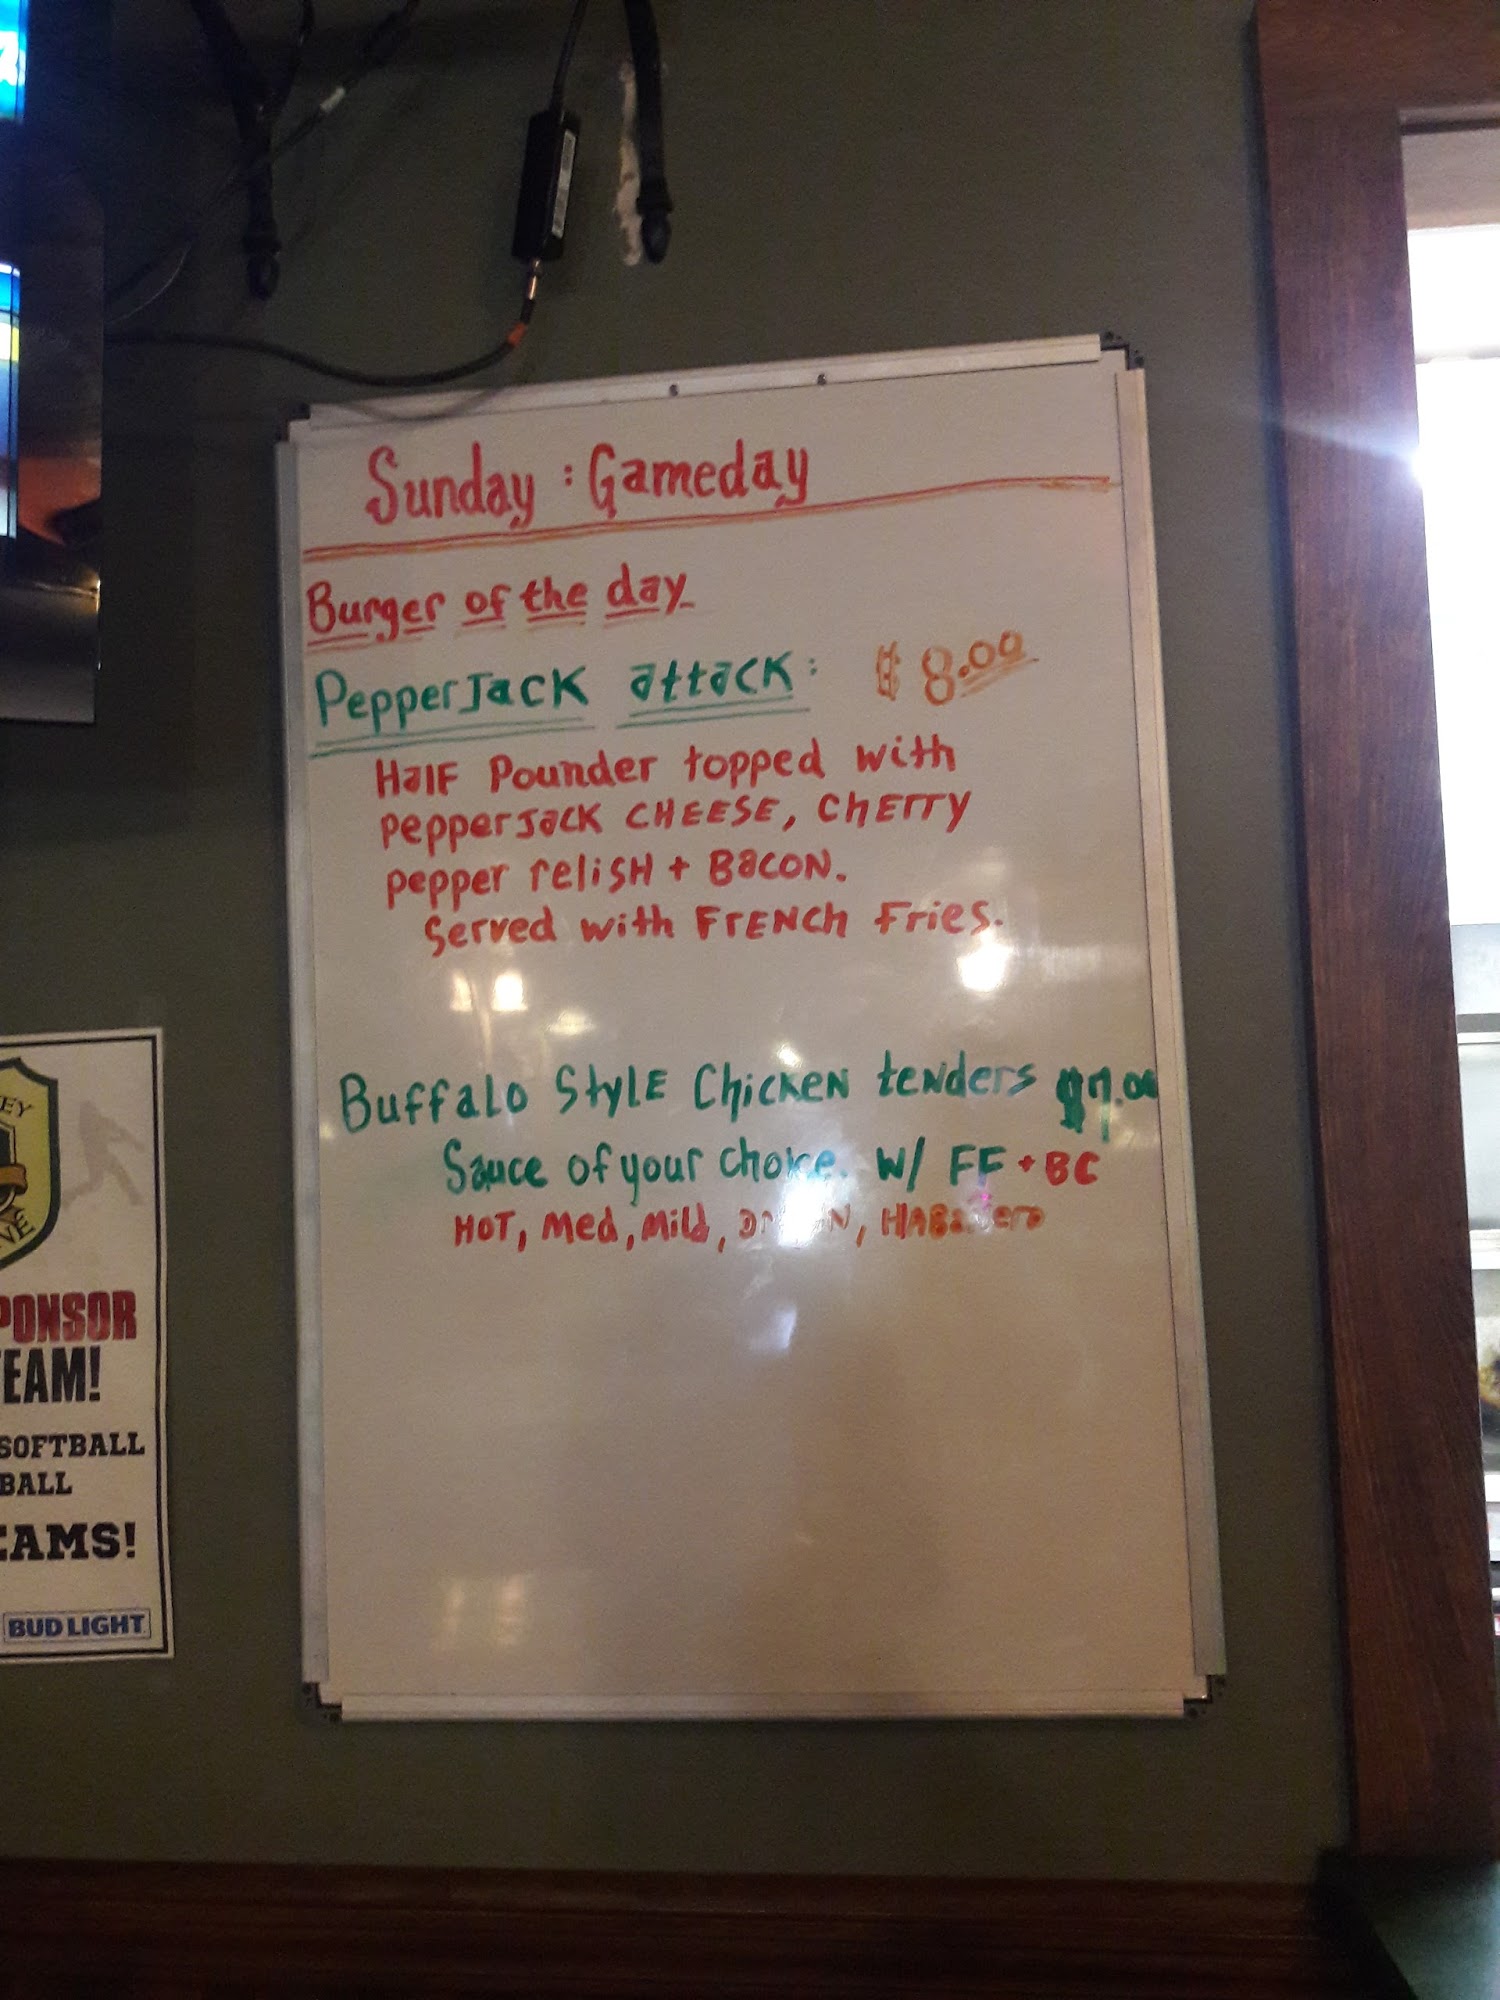 Sunday : Gameday
Burger of the day
PepperJack attack: $8.00
Half Pounder topped with
pepperjack CHEESE, CHErry
pepper relisH + BacoN.
Served with FrENCh Fries.
Buffalo StylE ChicKEN teNders $7.00
Sauce of your choice. W/ FF + BC
HOT, Med, Mild, HABaNero
EY
NE
PONSOR
TEAM!
SOFTBALL
BALL
EAMS!
BUD LIGHT